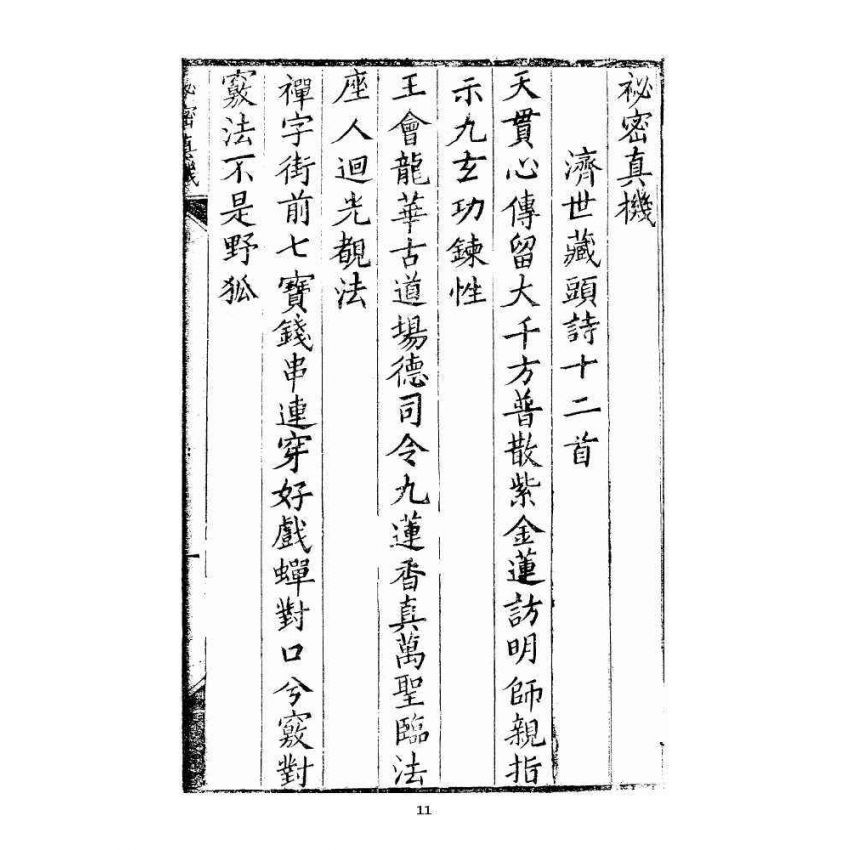 祕密真機
濟世藏頭詩十二首
天貫心傳留大千方普散紫金蓮訪明師親指
示九玄功鍊性
王會龍華古道場德司令九蓮香真萬聖臨法
座人迴光覩法
禪字街前七寶錢串連穿好戲蟬對口兮竅對
竅法不是野狐
祕密真機
一
11